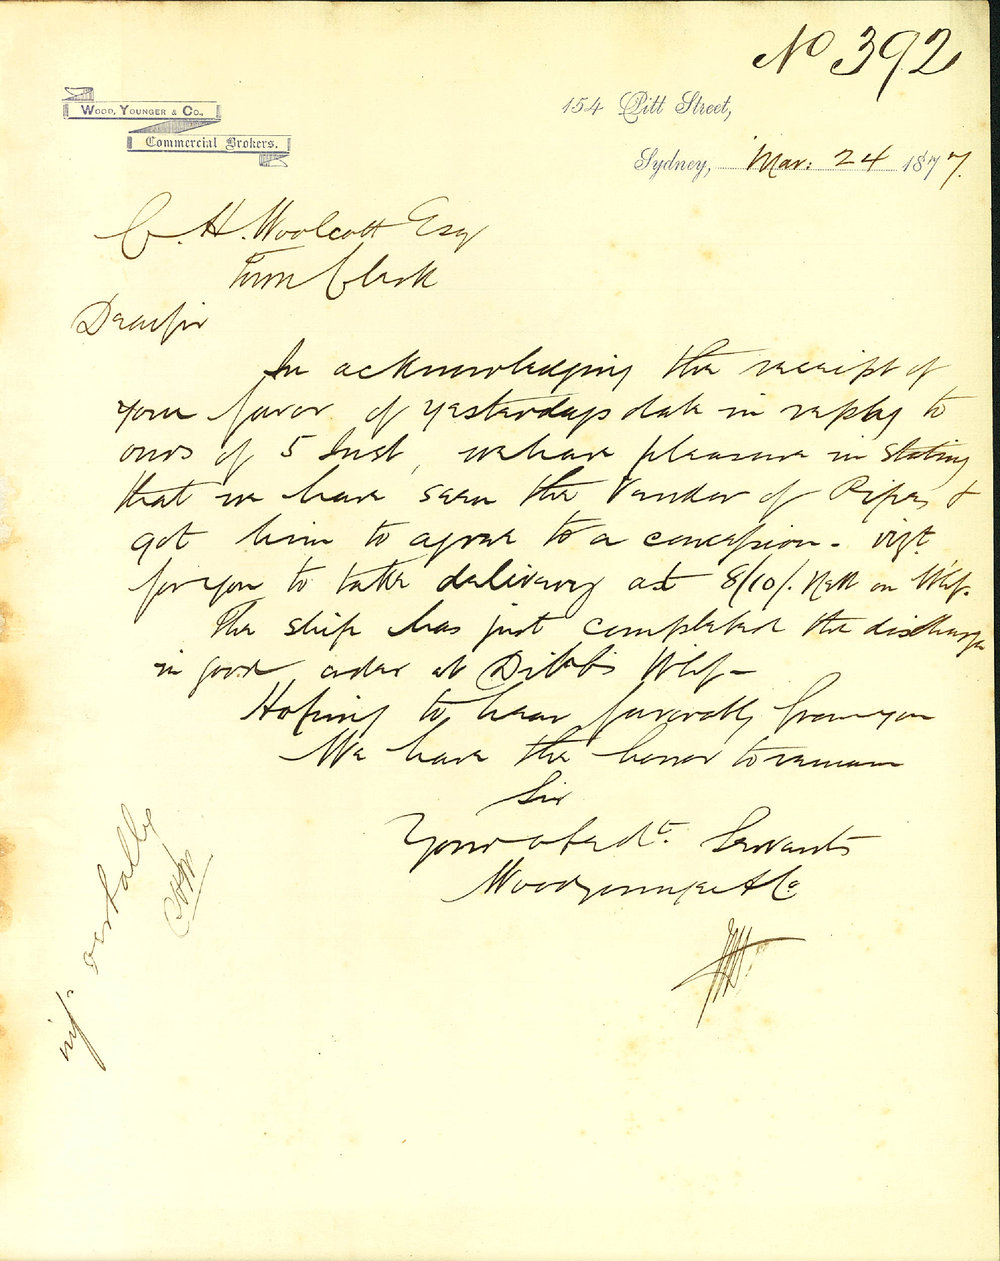 No 392
Wood, Younger & Co.,
Commercial Brokers.
154 Pitt Street,
Sydney, Mar: 24 1877.
C. H. Woolcott Esq
Town Clerk
Dear Sir
In acknowledging the receipt of
your favor of yesterdays date in reply to
ours of 5 Inst, we have pleasure in stating
that we have seen the Vendor of Pipes &
got him to agree to a concession - vizt
for you to take delivery at 8/10/. Nett on Whf.
The ship has just completed the discharge
in good order at Dibbs Whf -
Hoping to hear favorably from you
We have the honor to remain
Sir
Your obedt. Servants
Wood Younger & Co
infd verbally
CHW